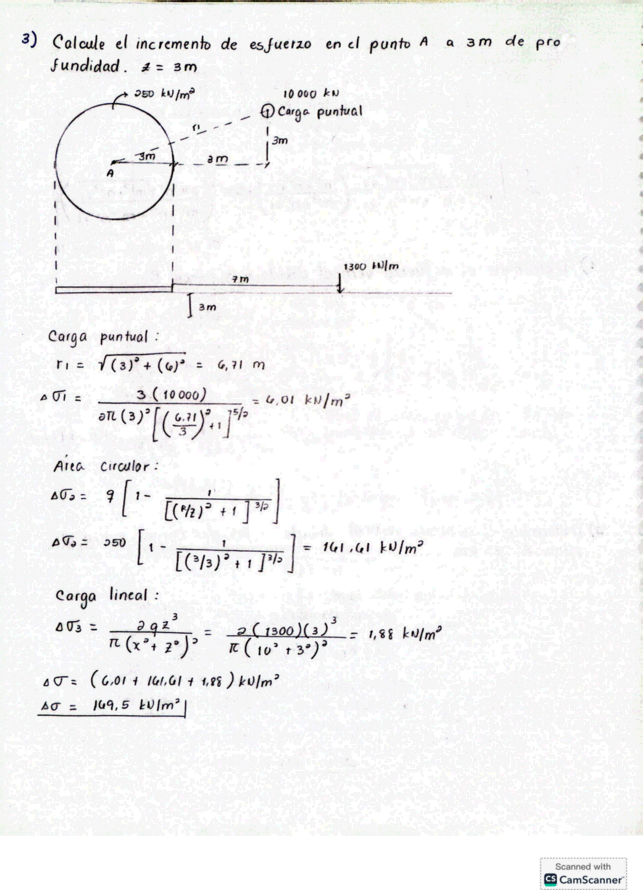 3) Calcule el incremento de esfuerzo en el punto A a 3m de pro
fundidad. z = 3m
250 kN/m²
10 000 kN
① Carga puntual
r1
3m
3m
2m
A
7m
1300 kN/m
3m
Carga puntual :
r1 = √(3)² + (6)² = 6,71 m
Δσ1 = 3 (10000) / 2π (3)² [(6.71/3)² + 1]^5/2 = 6,01 kN/m²
Área circular :
Δσ2 = q [1 - 1 / [(R/z)² + 1]^3/2]
Δσ2 = 250 [1 - 1 / [(3/3)² + 1]^3/2] = 161,61 kN/m²
Carga lineal :
Δσ3 = 2qz³ / π(x² + z²)² = 2(1300)(3)³ / π(10² + 3²)² = 1,88 kN/m²
Δσ = (6.01 + 161,61 + 1,88) kN/m²
Δσ = 169,5 kN/m²
Scanned with
CS CamScanner